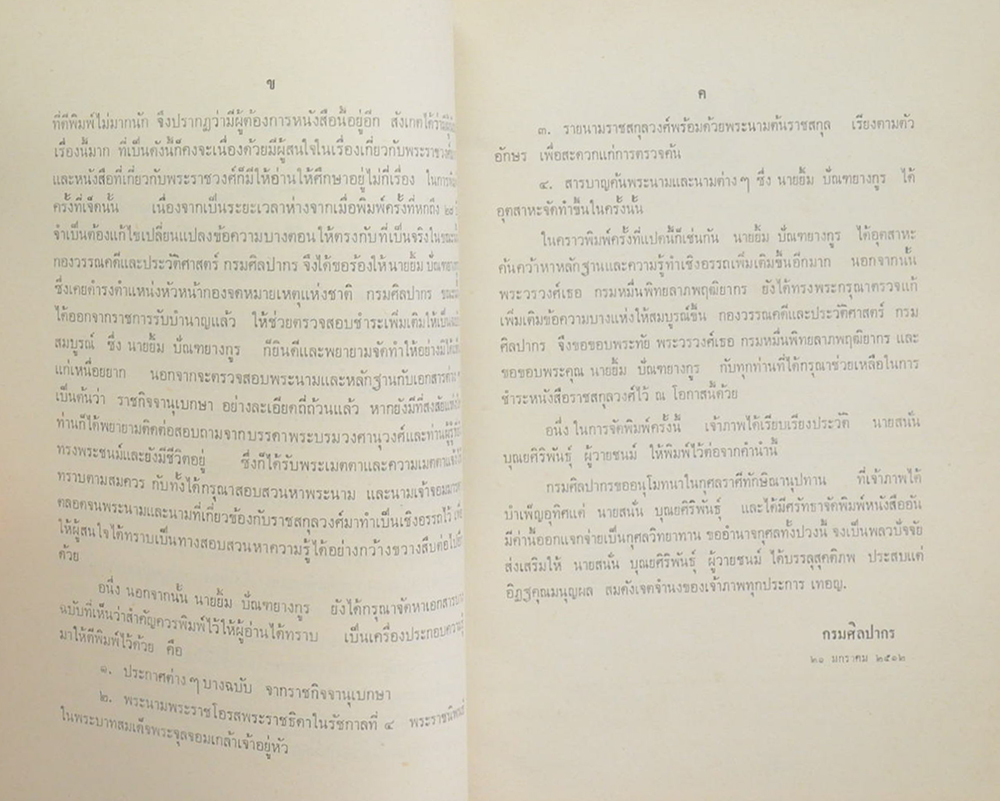 ข
ที่ตีพิมพ์ไม่มากนัก จึงปรากฏว่ามีผู้ต้องการหนังสือนี้อยู่อีก สังเกตได้ว่า
เรื่องนี้มาก ที่เป็นดังนี้ก็คงจะเนื่องด้วยมีผู้สนใจในเรื่องเกี่ยวกับพระราชวงศ์
และหนังสือที่เกี่ยวกับพระราชวงศ์ก็มีให้อ่านให้ศึกษาอยู่ไม่กี่เรื่อง ในการ
ครั้งที่เจ็ดนั้น เนื่องจากเป็นระยะเวลาห่างจากเมื่อพิมพ์ครั้งที่หกถึง ๒๘
จำเป็นต้องแก้ไขเปลี่ยนแปลงข้อความบางตอนให้ตรงกับที่เป็นจริงในขณะ
กองวรรณคดีและประวัติศาสตร์ กรมศิลปากร จึงได้ขอร้องให้นายยิ้ม บัณฑยางกูร
ซึ่งเคยดำรงตำแหน่งหัวหน้ากองจดหมายเหตุแห่งชาติ กรมศิลปากร
ได้ออกจากราชการรับบำนาญแล้ว ให้ช่วยตรวจสอบชำระเพิ่มเติมให้เป็น
สมบูรณ์ ซึ่ง นายยิ้ม บัณฑยางกูร ก็ยินดีและพยายามจัดทำให้อย่างมิได้
แก่เหนื่อยยาก นอกจากจะตรวจสอบพระนามและหลักฐานกับเอกสาร
เป็นต้นว่า ราชกิจจานุเบกษา อย่างละเอียดถี่ถ้วนแล้ว หากยังมีที่สงสัย
ท่านก็ได้พยายามติดต่อสอบถามจากบรรดาพระบรมวงศานุวงศ์และท่านผู้รู้
ทรงพระชนม์และยังมีชีวิตอยู่ ซึ่งก็ได้รับพระเมตตาและความเมตตา
ทราบตามสมควร กับทั้งได้กรุณาสอบสวนหาพระนาม และนามเจ้าจอมมารดา
ตลอดจนพระนามและนามที่เกี่ยวข้องกับราชสกุลวงศ์มาทำเป็นเชิงอรรถไว้
ให้ผู้สนใจได้ทราบเป็นทางสอบสวนหาความรู้ได้อย่างกว้างขวางสืบต่อไป
ด้วย
อนึ่ง นอกจากนั้น นายยิ้ม บัณฑยางกูร ยังได้กรุณาจัดหาเอกสาร
ฉบับที่เห็นว่าสำคัญควรพิมพ์ไว้ให้ผู้อ่านได้ทราบ เป็นเครื่องประกอบความรู้
มาให้ตีพิมพ์ไว้ด้วย คือ
๑. ประกาศต่าง ๆ บางฉบับ จากราชกิจจานุเบกษา
๒. พระนามพระราชโอรสพระราชธิดาในรัชกาลที่ ๔ พระราชนิพนธ์
ในพระบาทสมเด็จพระจุลจอมเกล้าเจ้าอยู่หัว
ค
๓. รายนามราชสกุลวงศ์พร้อมด้วยพระนามต้นราชสกุล เรียงตามตัว
อักษร เพื่อสะดวกแก่การตรวจค้น
๔. สารบาญค้นพระนามและนามต่าง ๆ ซึ่ง นายยิ้ม บัณฑยางกูร ได้
อุตสาหะจัดทำขึ้นในครั้งนั้น
ในคราวพิมพ์ครั้งที่แปดนี้ก็เช่นกัน นายยิ้ม บัณฑยางกูร ได้อุตสาหะ
ค้นคว้าหาหลักฐานและความรู้ทำเชิงอรรถเพิ่มเติมขึ้นอีกมาก นอกจากนั้น
พระวรวงศ์เธอ กรมหมื่นพิทยลาภพฤฒิยากร ยังได้ทรงพระกรุณาตรวจแก้
เพิ่มเติมข้อความบางแห่งให้สมบูรณ์ขึ้น กองวรรณคดีและประวัติศาสตร์ กรม
ศิลปากร จึงขอขอบพระทัย พระวรวงศ์เธอ กรมหมื่นพิทยลาภพฤฒิยากร และ
ขอขอบพระคุณ นายยิ้ม บัณฑยางกูร กับทุกท่านที่ได้กรุณาช่วยเหลือในการ
ชำระหนังสือราชสกุลวงศ์ไว้ ณ โอกาสนี้ด้วย
อนึ่ง ในการจัดพิมพ์ครั้งนี้ เจ้าภาพได้เรียบเรียงประวัติ นายสนั่น
บุณยศิริพันธุ์ ผู้วายชนม์ ให้พิมพ์ไว้ต่อจากคำนำนี้
กรมศิลปากรขออนุโมทนาในกุศลราศีทักษิณานุปทาน ที่เจ้าภาพได้
บำเพ็ญอุทิศแด่ นายสนั่น บุณยศิริพันธุ์ และได้มีศรัทธาจัดพิมพ์หนังสืออัน
มีค่านี้ออกแจกจ่ายเป็นกุศลวิทยาทาน ขออำนาจกุศลทั้งปวงนี้ จงเป็นพลวปัจจัย
ส่งเสริมให้ นายสนั่น บุณยศิริพันธุ์ ผู้วายชนม์ ได้บรรลุสุคติภพ ประสบแต่
อิฏฐคุณมนุญผล สมดังเจตจำนงของเจ้าภาพทุกประการ เทอญ.
กรมศิลปากร
๒๑ มกราคม ๒๕๑๒